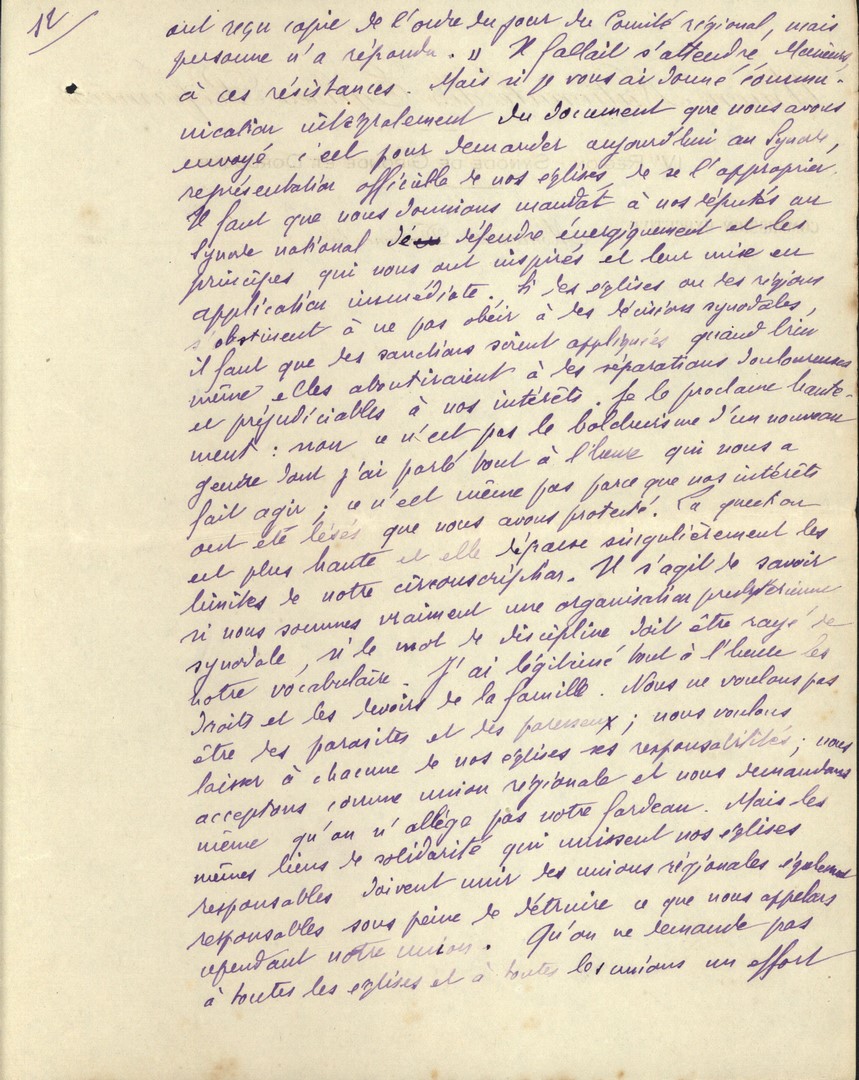 12
ont reçu copie de l'ordre du jour du Comité régional, mais
personne n'a répondu. » Il fallait s'attendre, Messieurs,
à ces résistances. Mais si je vous ai donné commu-
nication intégralement du document que nous avons
envoyé c'est pour demander aujourd'hui au Synode,
représentation officielle de nos églises, de se l'approprier.
Il faut que nous donnions mandat à nos députés au
Synode national de défendre énergiquement et les
principes qui nous ont inspirés et leur mise en
application immédiate. Si des églises ou des régions
s'obstinent à ne pas obéir à des décisions synodales,
il faut que des sanctions soient appliquées quand bien
même elles aboutiraient à des séparations douloureuses
et préjudiciables à nos intérêts. Je le proclame haute-
ment : non ce n'est pas le bolchevisme d'un nouveau
genre dont j'ai parlé tout à l'heure qui nous a
fait agir ; ce n'est même pas parce que nos intérêts
ont été lésés que nous avons protesté. La question
est plus haute et elle dépasse singulièrement les
limites de notre circonscription. Il s'agit de savoir
si nous sommes vraiment une organisation presbytérienne
synodale, si le mot de discipline doit être rayé de
notre vocabulaire. J'ai légitimé tout à l'heure les
droits et les devoirs de la famille. Nous ne voulons pas
être des parasites et des paresseux ; nous voulons
laisser à chacune de nos églises ses responsabilités ; nous
acceptons comme union régionale et nous demandons
même qu'on n'allège pas notre fardeau. Mais les
mêmes liens de solidarité qui unissent nos églises
responsables doivent unir des unions régionales également
responsables sous peine de détruire ce que nous appelons
cependant notre union. Qu'on ne demande pas
à toutes les églises et à toutes les unions un effort